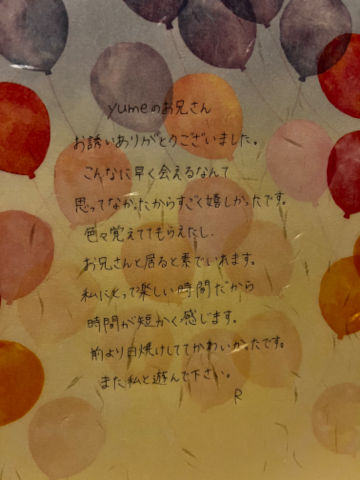 yumeのお兄さん
お誘いありがとうございました。
こんなに早く会えるなんて
思ってなかったからすごく嬉しかったです。
色々覚えててもらえたし、
お兄さんと居ると素でいれます。
私にとって楽しい時間だから
時間が短かく感じます。
前より日焼けしててかわいかったです。
また私と遊んで下さい。
R